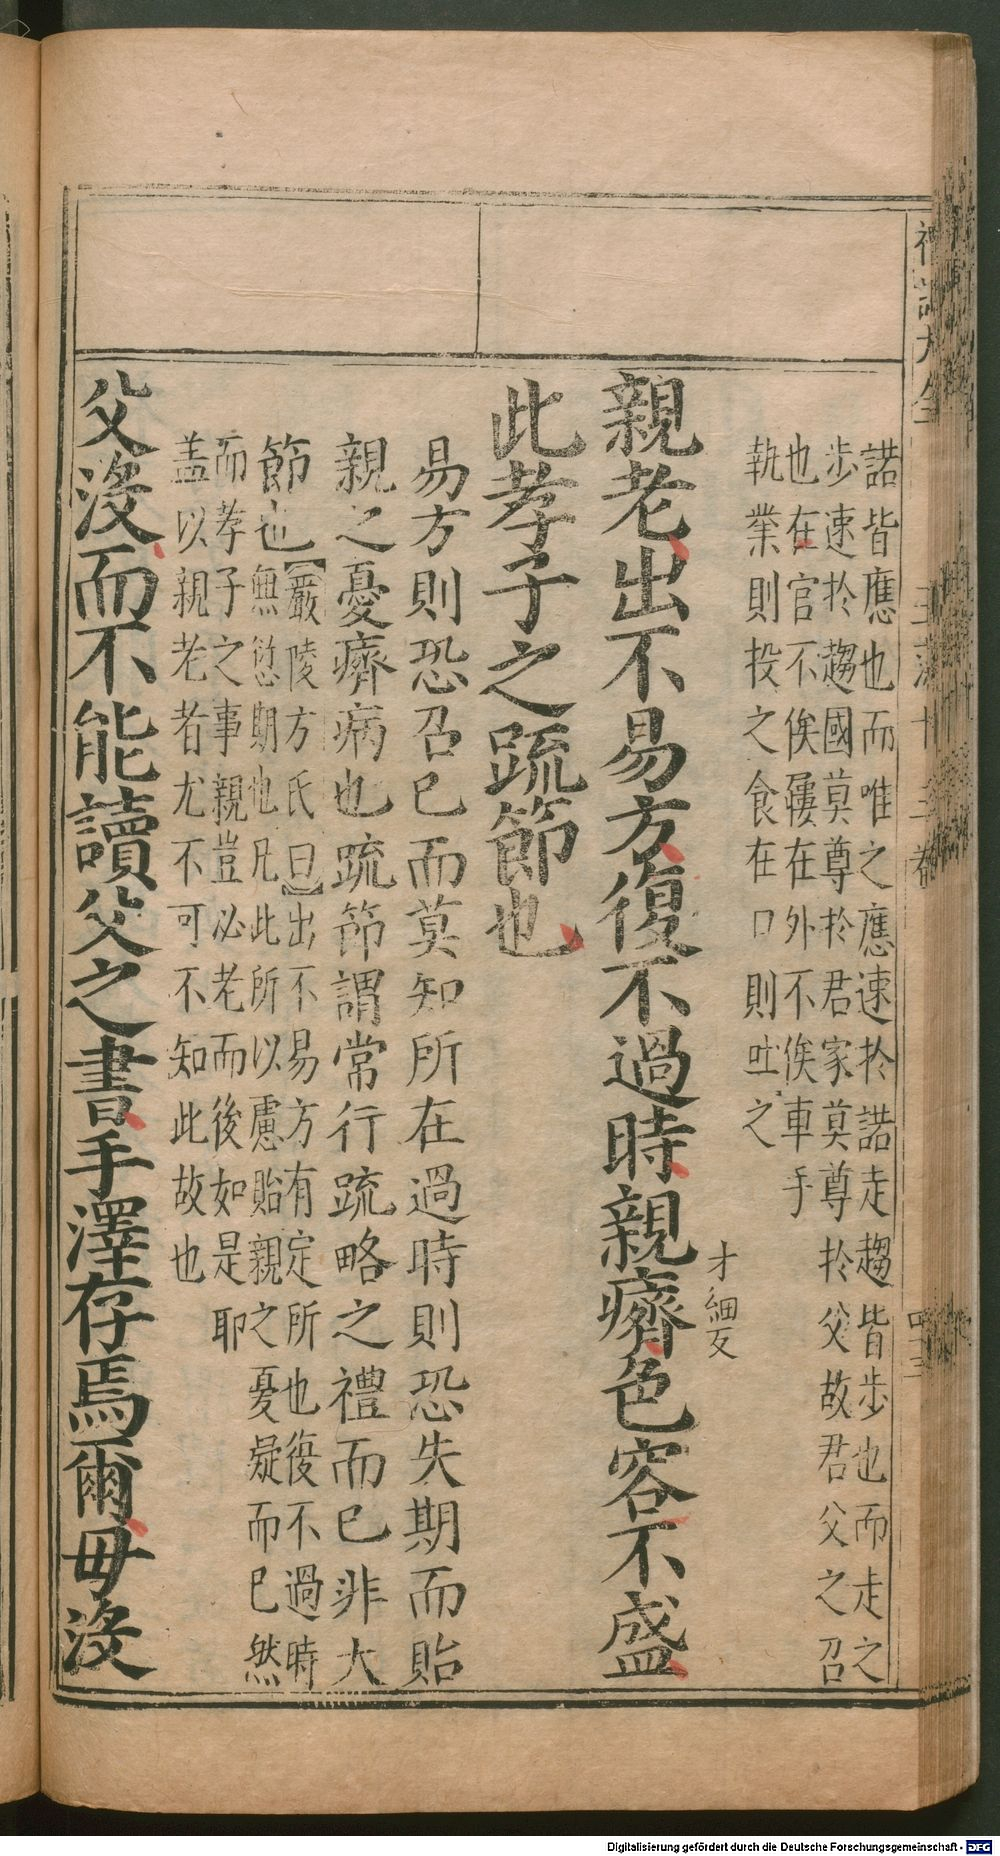 諾皆應也而唯之應速扵諾走趨皆歩也而走之
歩速扵趨國莫尊扵君家莫尊扵父故君父之召
也在官不俟屨在外不俟車手
執業則投之食在口則吐之
才細反
親老出不易方復不過時親癠色容不盛
此孝子之疏節也
易方則恐召已而莫知所在過時則恐失期而貽
親之憂癠病也疏節謂常行疏略之禮而已非大
節也
【嚴陵方氏曰】出不易方有定所也復不過時
無愆期也凡此所以慮貽親之憂疑而已然
而孝子之事親豈必老而後如是耶
盖以親老者尤不可不知此故也
父沒而不能讀父之書手澤存焉爾毋沒
Digitalisierung gefördert durch die Deutsche Forschungsgemeinschaft - DFG